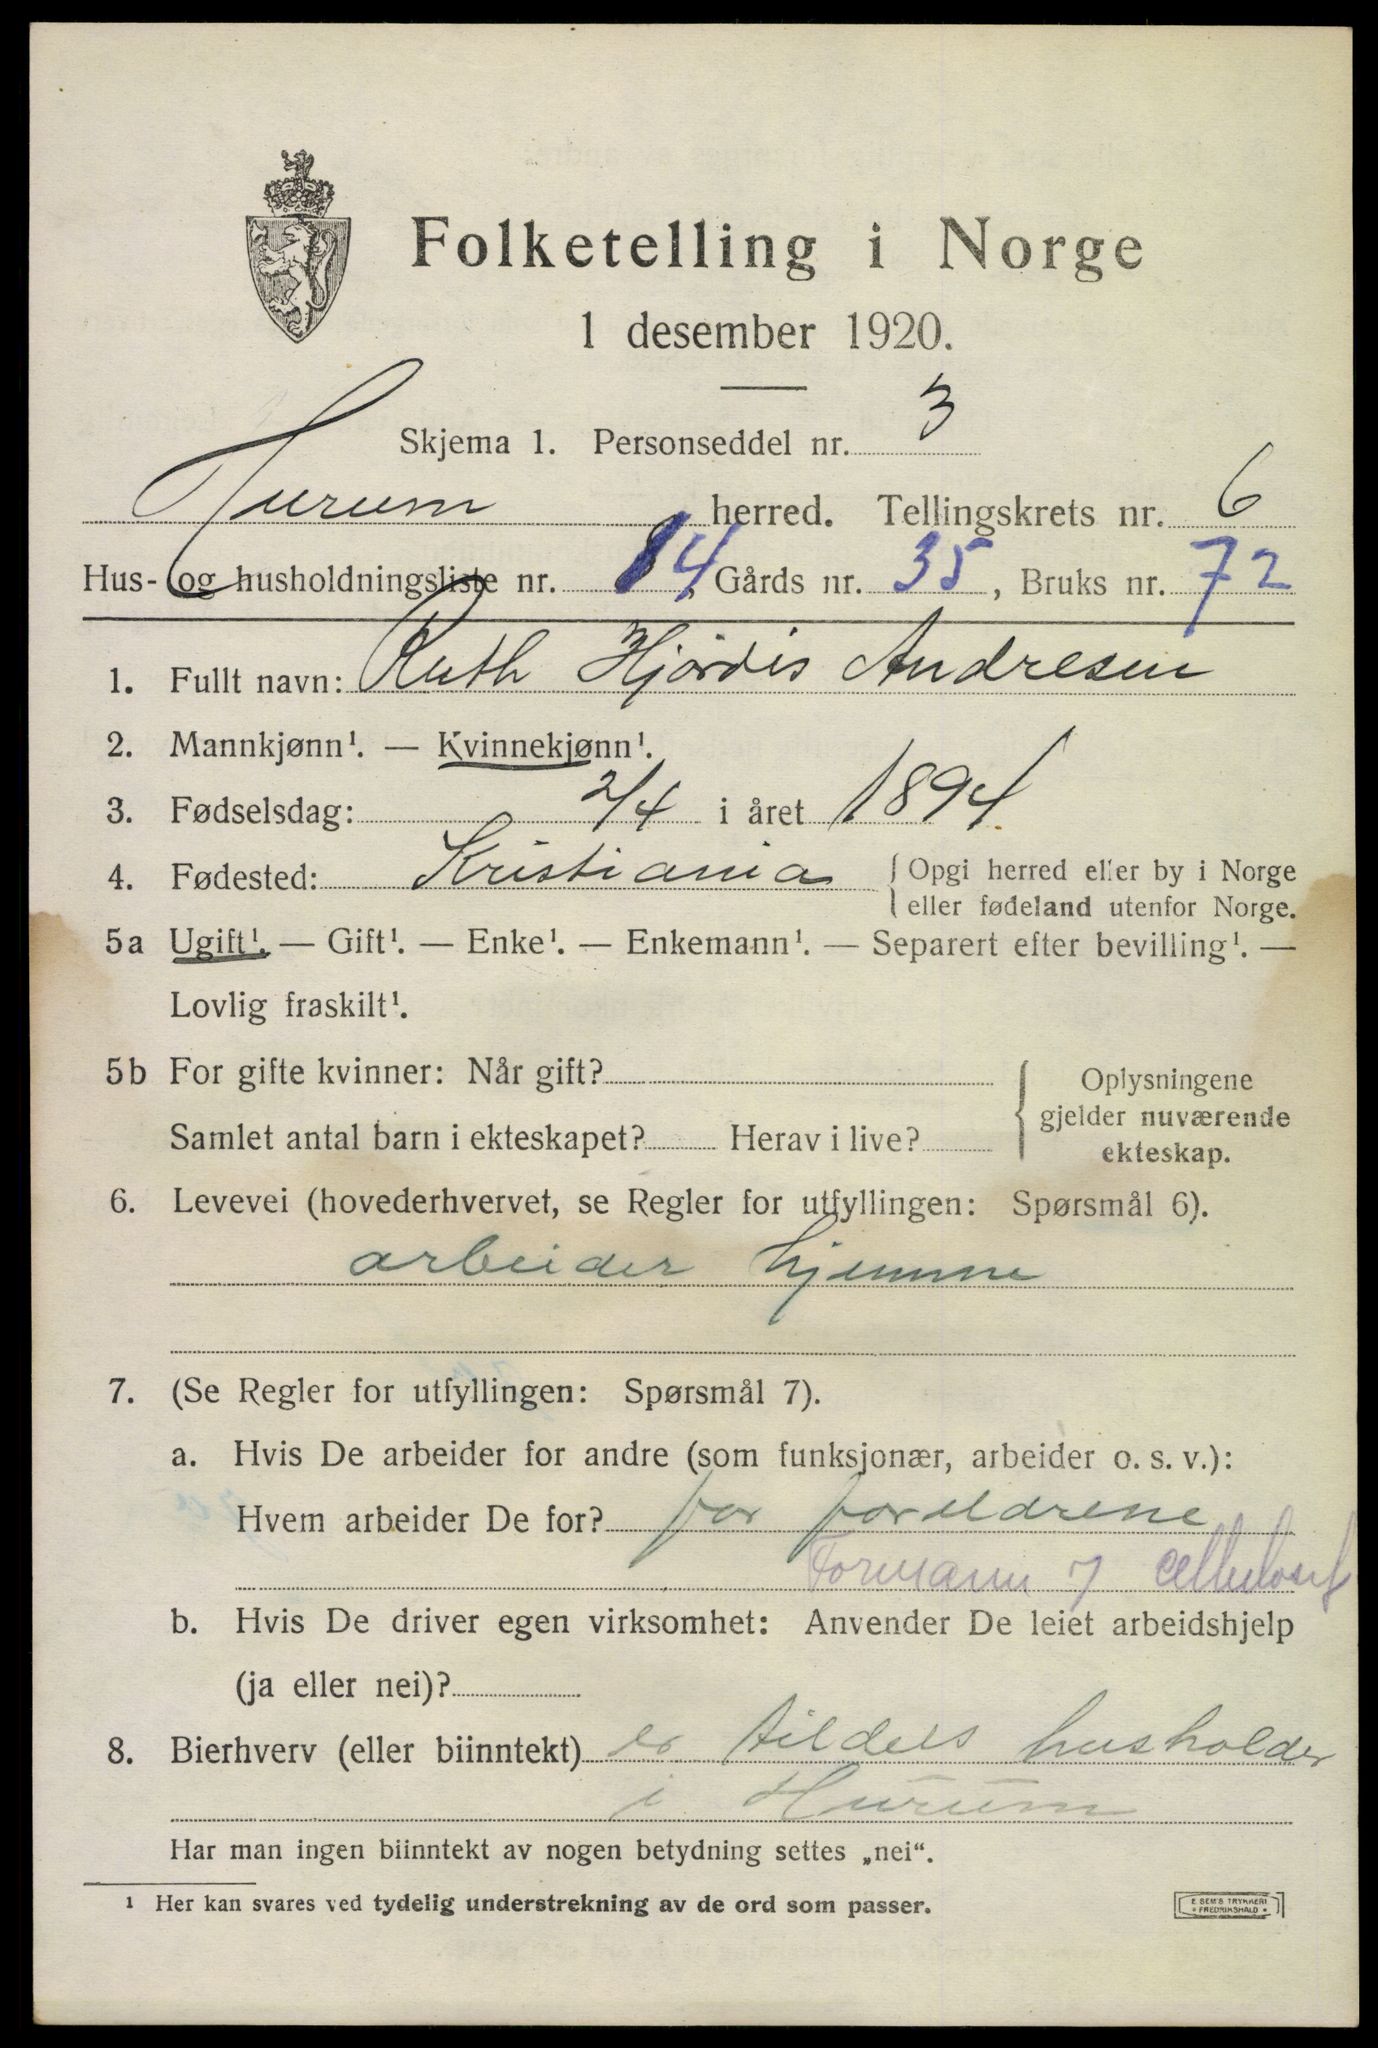 Folketelling i Norge
1 desember 1920.
Skjema 1. Personseddel nr. 3
Hurum herred. Tellingskrets nr. 6
Hus- og husholdningsliste nr. 14, Gårds nr. 35, Bruks nr. 72
1. Fullt navn: Ruth Hjördis Andresen
2. Mannkjønn¹. — Kvinnekjønn¹.
3. Fødselsdag: 2/4 i året 1894
4. Fødested: Kristiania {Opgi herred eller by i Norge
eller fødeland utenfor Norge.
5a Ugift¹. — Gift¹. — Enke¹. — Enkemann¹. — Separert efter bevilling¹. —
Lovlig fraskilt¹.
5b For gifte kvinner: Når gift?
Samlet antal barn i ekteskapet? Herav i live?
{Oplysningene
gjelder nuværende
ekteskap.
6. Levevei (hovederhvervet, se Regler for utfyllingen: Spørsmål 6).
arbeider hjemme
7. (Se Regler for utfyllingen: Spørsmål 7).
a. Hvis De arbeider for andre (som funksjonær, arbeider o. s. v.):
Hvem arbeider De for? for foreldrene
Formann cellulosef
b. Hvis De driver egen virksomhet: Anvender De leiet arbeidshjelp
(ja eller nei)?
8. Bierhverv (eller biinntekt) er tildels husholder
i Hurum
Har man ingen biinntekt av nogen betydning settes „nei“.
¹ Her kan svares ved tydelig understrekning av de ord som passer.
E. SEM'S TRYKKERI
FREDRIKSHALD